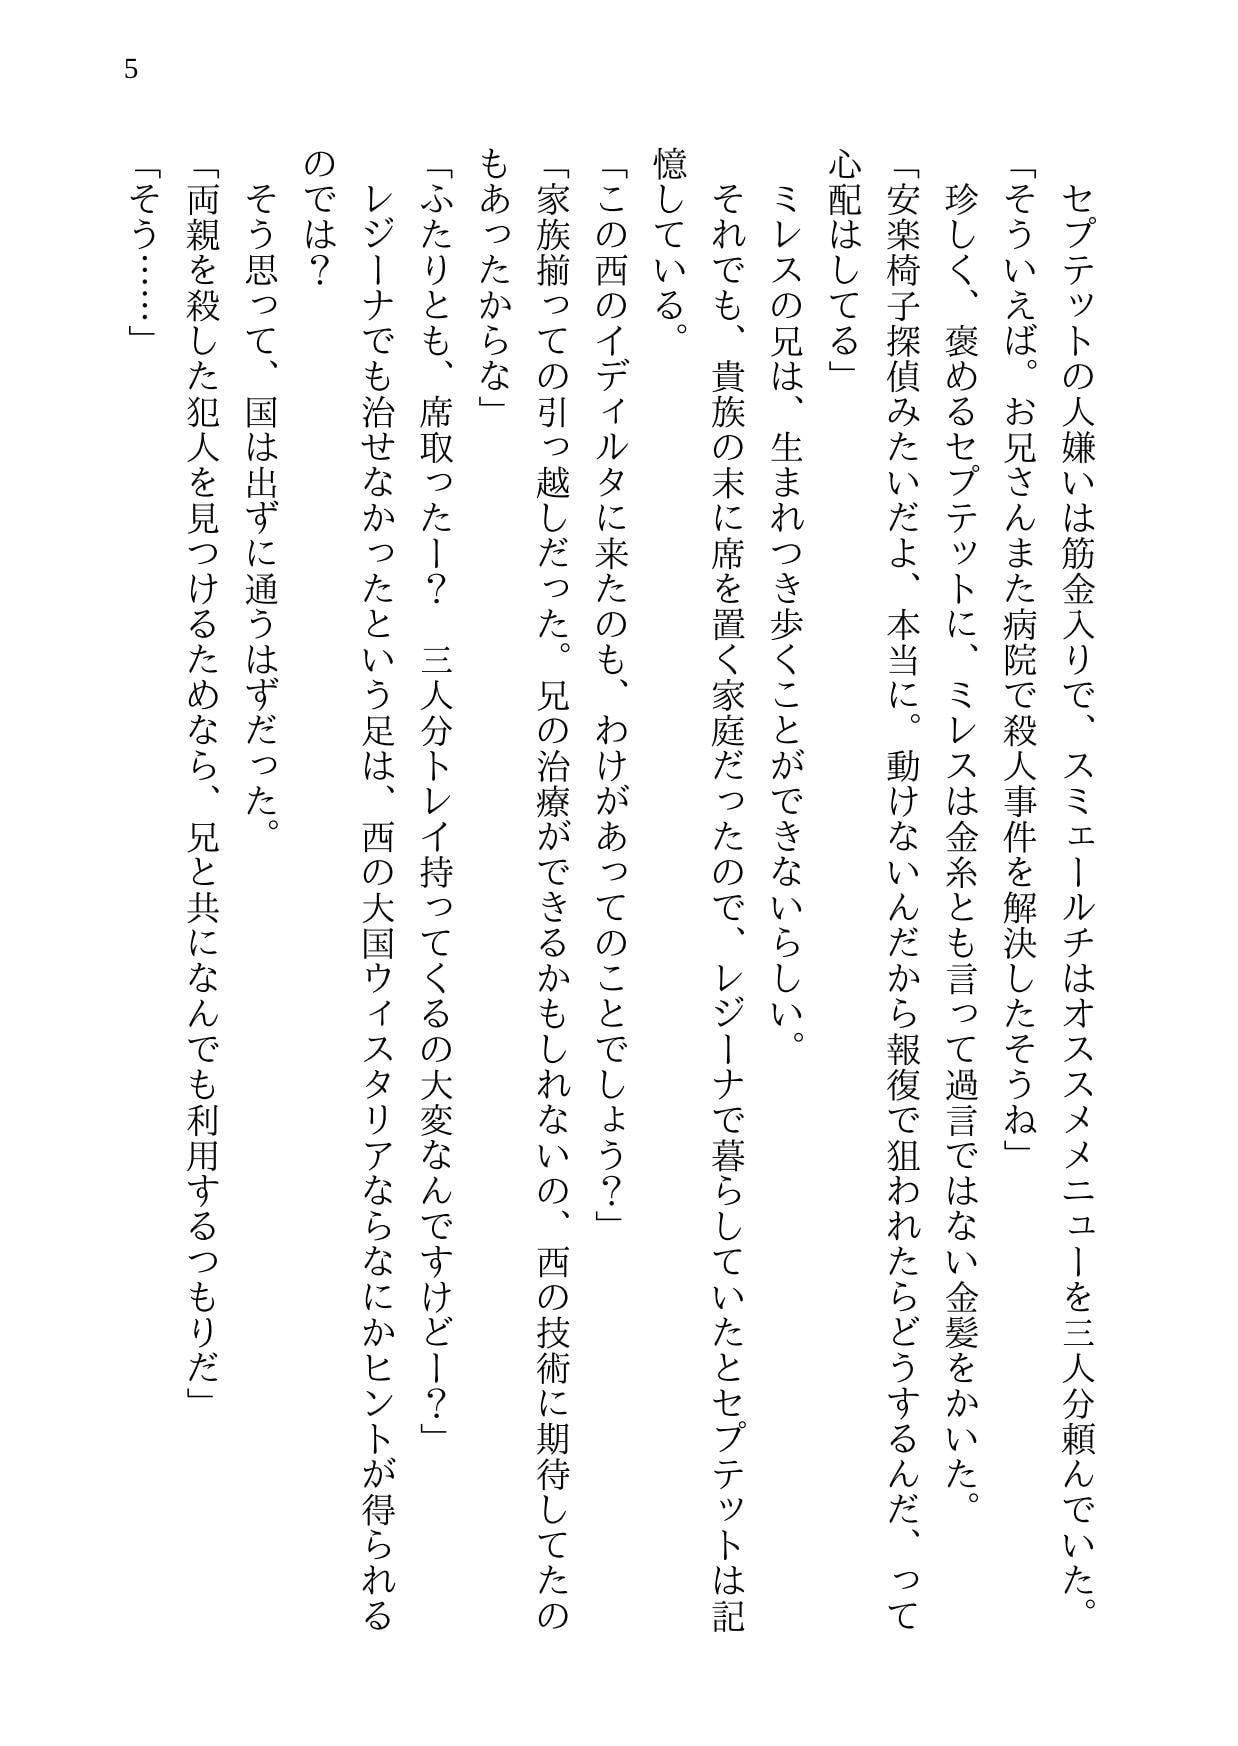 5
　セプテットの人嫌いは筋金入りで、スミェールチはオススメメニューを三人分頼んでいた。
「そういえば。お兄さんまた病院で殺人事件を解決したそうね」
　珍しく、褒めるセプテットに、ミレスは金糸とも言って過言ではない金髪をかいた。
「安楽椅子探偵みたいだよ、本当に。動けないんだから報復で狙われたらどうするんだ、って
心配はしてる」
　ミレスの兄は、生まれつき歩くことができないらしい。
　それでも、貴族の末に席を置く家庭だったので、レジーナで暮らしていたとセプテットは記
憶している。
「この西のイディルタに来たのも、わけがあってのことでしょう？」
「家族揃っての引っ越しだった。兄の治療ができるかもしれないの、西の技術に期待してたの
もあったからな」
「ふたりとも、席取ったー？　三人分トレイ持ってくるの大変なんですけどー？」
　レジーナでも治せなかったという足は、西の大国ウィスタリアならなにかヒントが得られる
のでは？
　そう思って、国は出ずに通うはずだった。
「両親を殺した犯人を見つけるためなら、兄と共になんでも利用するつもりだ」
「そう……」